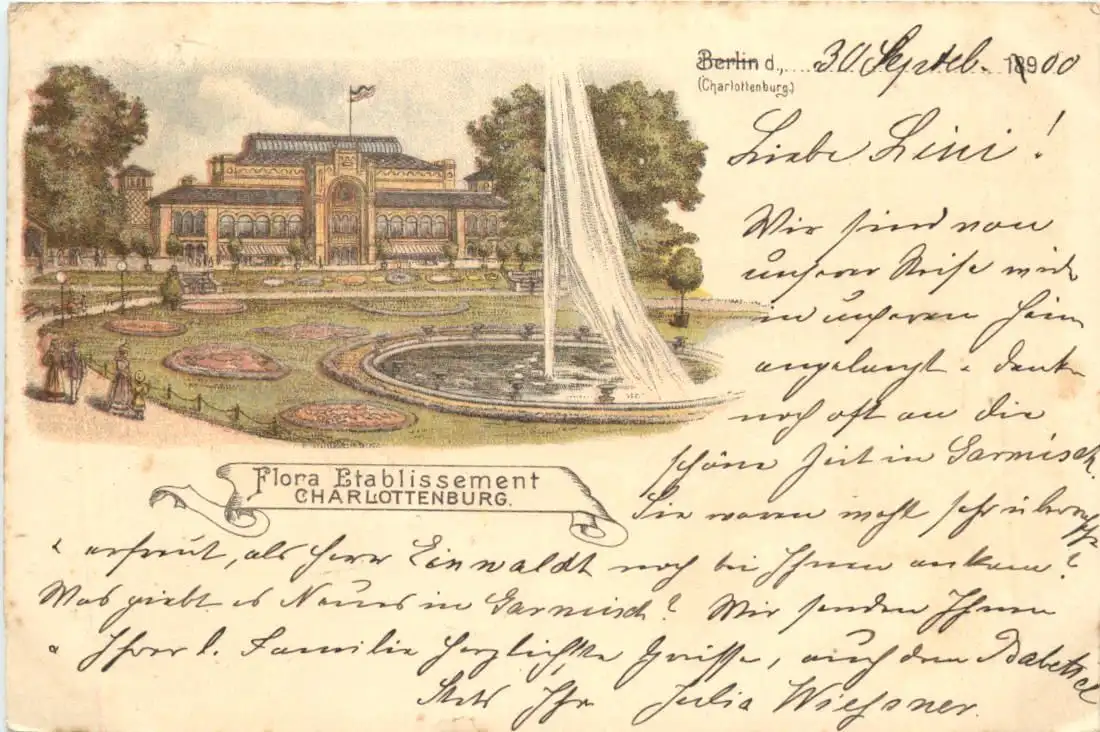 Berlin d., 30 Septeb. 1900
(Charlottenburg.)
Liebe Lini!
Wir sind von
unserer Reise wied.
in unserem Heim
angelangt u. denk.
noch oft an die
schöne Zeit in Garmisch.
Sie waren wohl sehr überrascht
u. erfreut, als Herr Einwaldt noch bei Ihnen ankam?
Was giebt es Neues in Garmisch? Wir senden Ihnen
u. Ihrer l. Familie herzlichste Grüsse, auch dem Babettel
Stets Ihre Julia Wiessner.
Flora Etablissement
CHARLOTTENBURG.